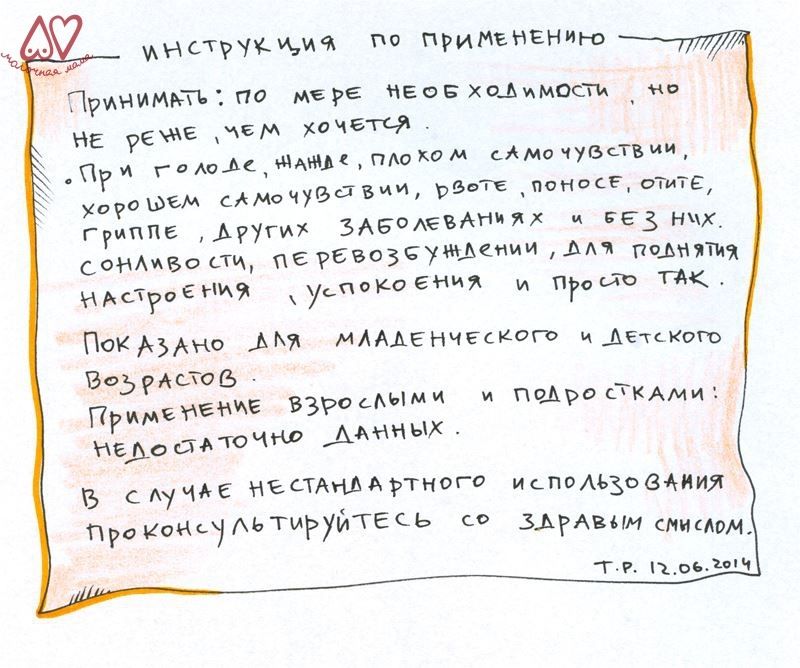 молочная мама
ИНСТРУКЦИЯ ПО ПРИМЕНЕНИЮ
ПРИНИМАТЬ: ПО МЕРЕ НЕОБХОДИМОСТИ, НО
НЕ РЕЖЕ, ЧЕМ ХОЧЕТСЯ.
. ПРИ ГОЛОДЕ, ЖАЖДЕ, ПЛОХОМ САМОЧУВСТВИИ,
ХОРОШЕМ САМОЧУВСТВИИ, РВОТЕ, ПОНОСЕ, ОТИТЕ,
ГРИППЕ, ДРУГИХ ЗАБОЛЕВАНИЯХ И БЕЗ НИХ.
СОНЛИВОСТИ, ПЕРЕВОЗБУЖДЕНИИ, ДЛЯ ПОДНЯТИЯ
НАСТРОЕНИЯ, УСПОКОЕНИЯ И ПРОСТО ТАК.
ПОКАЗАНО ДЛЯ МЛАДЕНЧЕСКОГО И ДЕТСКОГО
ВОЗРАСТОВ.
ПРИМЕНЕНИЕ ВЗРОСЛЫМИ И ПОДРОСТКАМИ:
НЕДОСТАТОЧНО ДАННЫХ.
В СЛУЧАЕ НЕСТАНДАРТНОГО ИСПОЛЬЗОВАНИЯ
ПРОКОНСУЛЬТИРУЙТЕСЬ СО ЗДРАВЫМ СМЫСЛОМ.
Т.Р. 12.06.2014